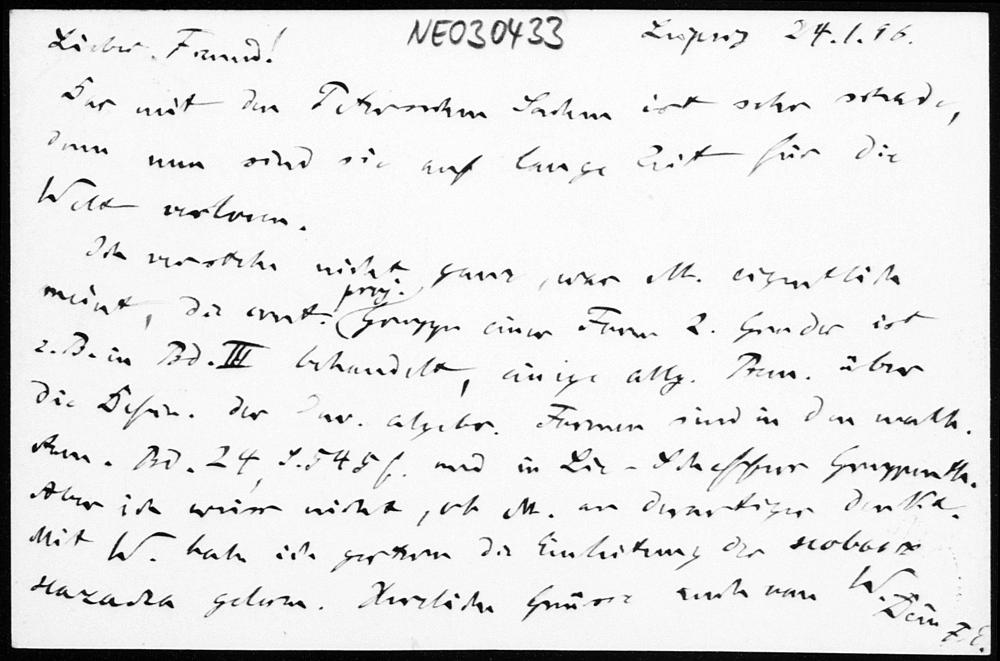 NEO30433
Lieber Freund! Leipzig 24.1.96.
Das mit den Petersschen Sachen ist sehr schade,
denn nun sind sie auf lange Zeit für die
Welt verloren.
Ich verstehe nicht ganz, was M. eigentlich
meint, die cont. proj. Gruppe einer Form 2. Grades ist
z.B. in Bd. III behandelt, einige allg. Bem. über
die Bestim. der algebr. Formen sind in den math.
Ann. Bd. 24, S. 545 f. und in Lie-Scheffers Gruppenth.
Aber ich weiss nicht, ob M. an derartiges denkt.
Mit W. habe ich gestern die Einleitung der новыя
начала gelesen. Herzliche Grüsse auch von W.
Dein F.E.